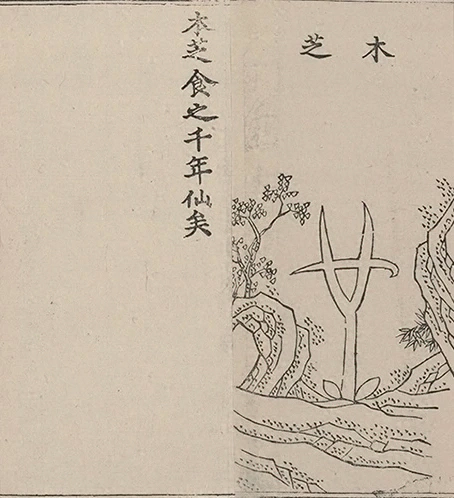 木芝
木芝食之千年仙矣